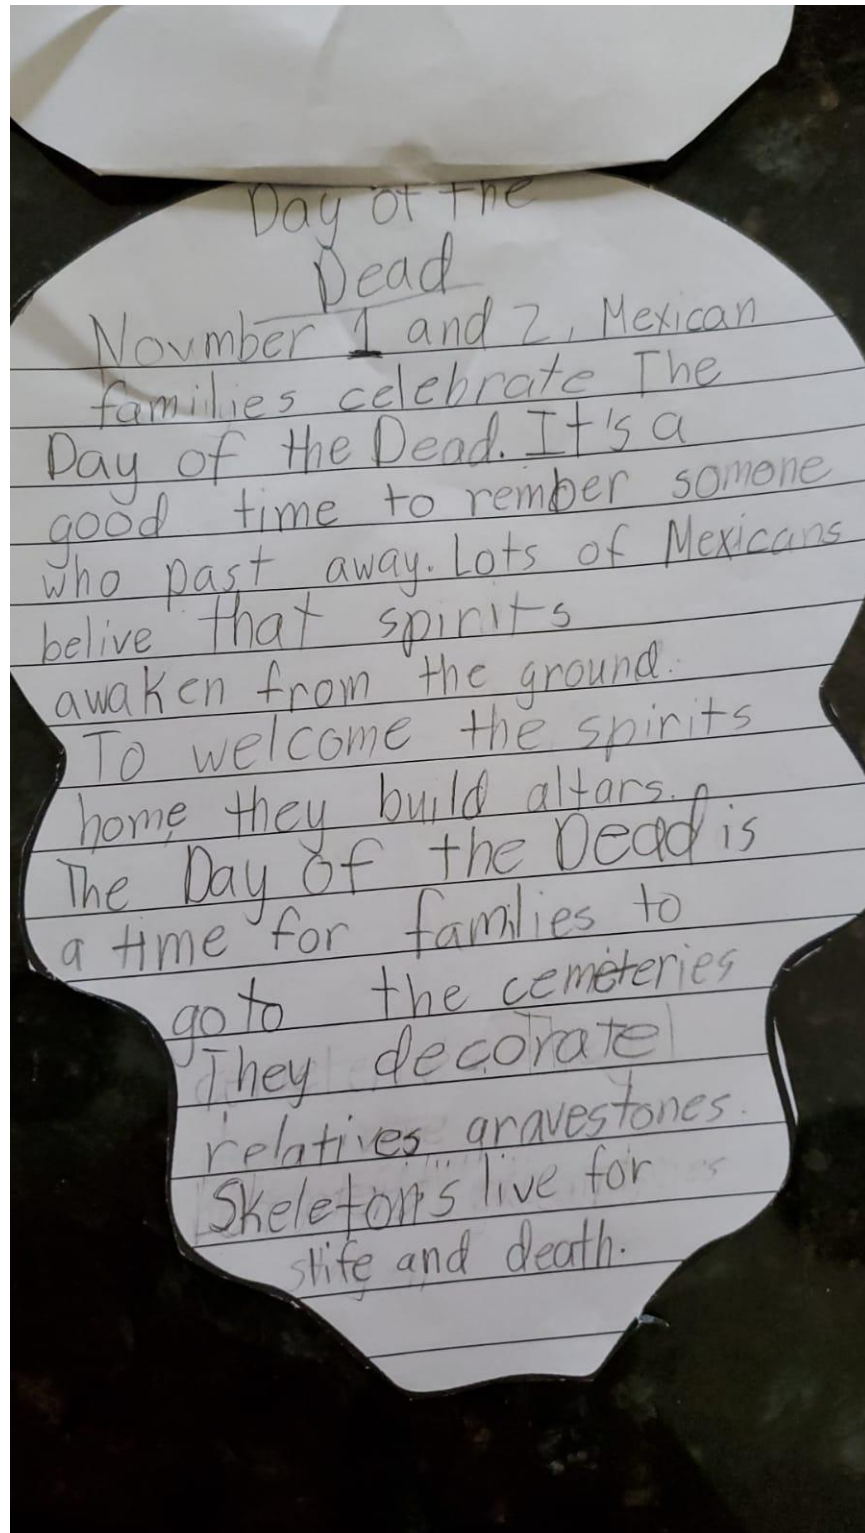 Day of the
Dead
Novmber 1 and 2, Mexican
families celebrate The
Day of the Dead. It's a
good time to rember somone
who past away. Lots of Mexicans
belive that spirits
awaken from the ground.
To welcome the spirits
home, they build altars.
The Day Of the Dead is
a time for families to
go to the cemeteries
They decorate
relatives gravestones.
Skeleton's live for
life and death.